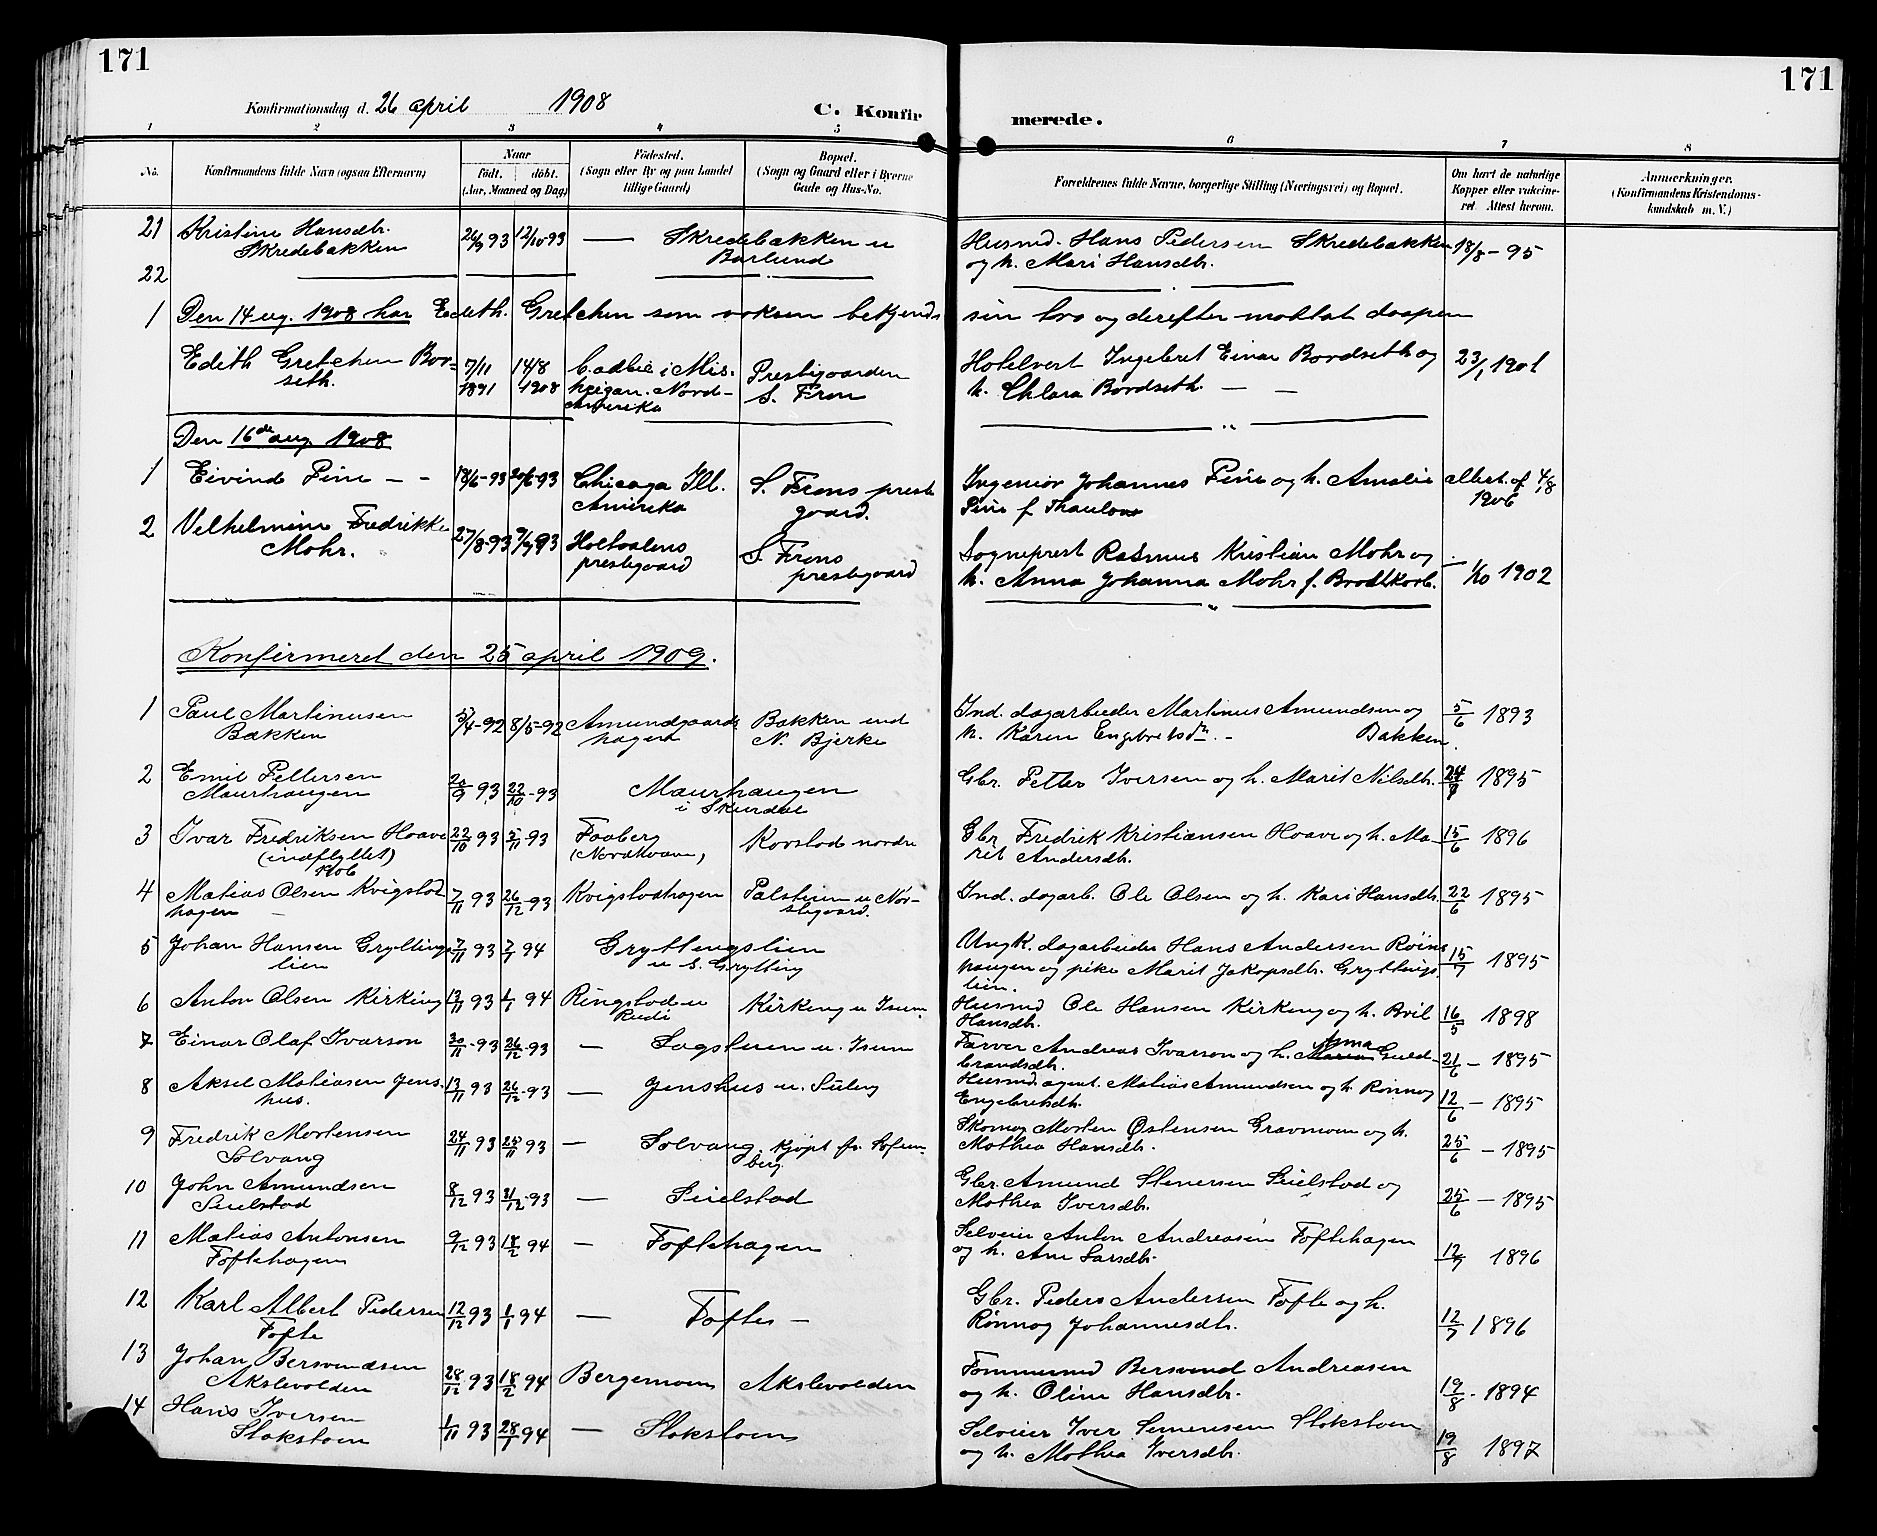 171
171
Konfirmationsdag d. 26 april 1908
C. Konfirmerede.
1 2 3 4 5 6 7 8
No. Konfirmandens fulde Navn (ogsaa Efternavn) Naar Födt. döbt. (Aar, Maaned og Dag) Födested. (Sogn eller By og paa Landet tillige Gaard) Bopæl. (Sogn og Gaard eller i Byerne Gade og Hus-No. Forældrenes fulde Navne, borgerlige Stilling (Næringsvei) og Bopæl. Om havt de naturlige Kopper eller vakcineret. Attest herom. Anmerkninger. (Konfirmandens Kristendomskundskab m. V.)
21 Kristine Hansdtr. 26/9 93 12/10-93 — Skredebakken u Husmd. Hans Pedersen Skredebakken 18/8-95
Skredebakken Barlund og h. Mari Hansdtr.
22
1 Den 14 aug. 1908 har Edith. Gretchen som voksen bekjendt sin tro og derefter mottat daapen
Edith Gretchen Bor- 7/11 14/8 Cadbie i Mis- Prestegaarden Hotelvert Ingebret Einar Bordseth og 23/1 1901
seth. 1891 1908 heigan. Nord- S. Fron h. Chlara Bordseth — —
Amerika
Den 16de aug. 1908
1 Eivind Fine - - 18/6-93 20/6-93 Chicago Ill. S. Frons preste Ingeniør Johannes Fine og h. Amalie attest. af 4/8
Amerika gaard. Fine f. Thaulow 1906
2 Velhelmine Fredrikke 27/8-93 Holtaalens S. Frons Sogneprest Rasmus Kristian Mohr og
Mohr. prestegaard prestegaard h. Anna Johanna Mohr f. Brodtkorb. 1/10 1902
Konfirmeret den 25 april 1909.
1 Paul Martinusen 5/4-92 8/5-92 Amundgaards Bakken und Ind. dagarbeider Martinus Amundsen og 5/6 1893
Bakken hagen N. Bjerke h. Karen Engebretsdtr. - Bakken.
2 Emil Pettersen 93 22/10-93 Maurhaugen Gbr. Petter Iversen og h. Marit Nilsdtr. 1895
Maurhaugen i Skurdal
3 Ivar Fredriksen Haave 22/10 93 5/11-93 Faaberg Korstad nordre Gbr Fredrik Kristiansen Haave og h. Ma- 15/6 1896
(indflyttet) rit Andersdtr.
4 Matias Olsen Kvigstad 7/11 93 26/12-93 Kvigstadhagen Palsteien u Nor- Ind. dagarb. Ole Olsen og h. Kari Hansdtr. 22/6 1895
hagen stegaard.
5 Johan Hansen Gryttings 7/11 93 7/1 94 Gryttingslien Ungk. dagarbeider Hans Andersen Røine
lien u S. Grytting haugen og pike Marit Jakopsdtr. Gryttings 15/7 1895
lien.
6 Anton Olsen Kirkeng 12/11 93 1/1 94 Ringstad u Kirkeng u Isum Husmd Ole Hansen Kirkeng og h. Brit 16/5 1898
Rudi Hansdtr.
7 Einar Olaf Ivarson 30/11-93 26/12-93 — Sagstuen u. Isum Farver Andreas Ivarson og h. Anna Guld- 21/6 - 1895
brandsdtr.
8 Aksel Matiasen Jens- 13/11 93 26/12-93 — Jenshus u. Syley Husmd. agent. Matias Amundsen og h. Rønnog 12/6 - 1895
hus. Engebretsdtr.
9 Fredrik Mortensen 24/11 93 25/11 93 — Solvang, kjøpt fr. Sofien- Skomag Morten Østensen Gravmoen og h.
Solvang berg Mathea Hansdtr. 25/6 - 1895
10 John Amundsen 8/12 93 31/12-93 — Sielstad Gbr. Amund Stenersen Sielstad og
Sielstad Mathea Iversdtr. 25/6 - 1895
11 Matias Antonsen 9/12 93 18/2 94 — Toftehagen Selveier Anton Andreasen Toftehagen
Toftehagen og h. Ane Larsdtr. 12/7 1896
12 Karl Albert Pedersen 12/12 93 1/1 94 — Tofte — Gbr. Peder Andersen Tofte og h.
Tofte Rønnog Johannesdtr. 12/7 1896
13 Johan Bersvendsen 28/12 93 18/2 94 Bergemoen Akslevolden Tømmermd Bersvend Andreasen
Akslevolden og h. Oline Hansdtr. 19/8. 1894
14 Hans Iversen 1/11 93 28/1 94 — Slokstoen Selveier Iver Simensen Slokstoen
Slokstoen og h. Mathea Iversdtr. 19/8 1897